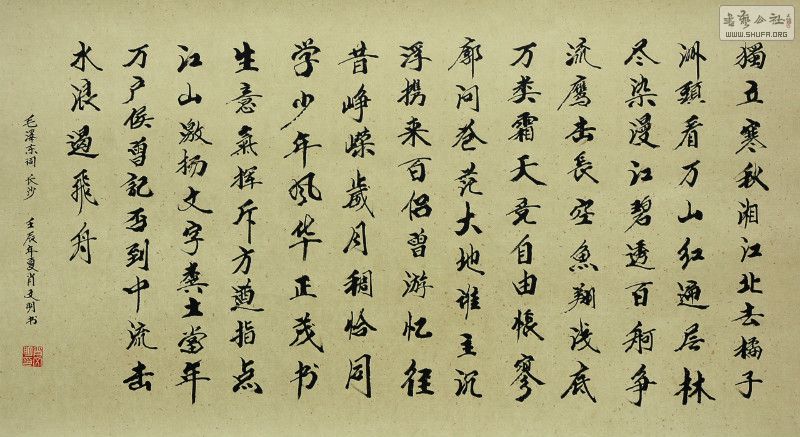 獨立寒秋湘江北去橘子
洲頭看万山红遍层林
尽染漫江碧透百舸争
流鹰击長空魚翔浅底
万类霜天竞自由怅寥
廓问苍茫大地谁主沉
浮携来百侣曾游忆往
昔峥嵘歲月稠恰同
学少年风华正茂书
生意氣挥斥方遒指点
江山激扬文字粪土當年
万户侯曾記否到中流击
水浪遏飛舟
毛澤东词 长沙 壬辰年夏肖文明书
书艺公社
WWW.SHUFA.ORG